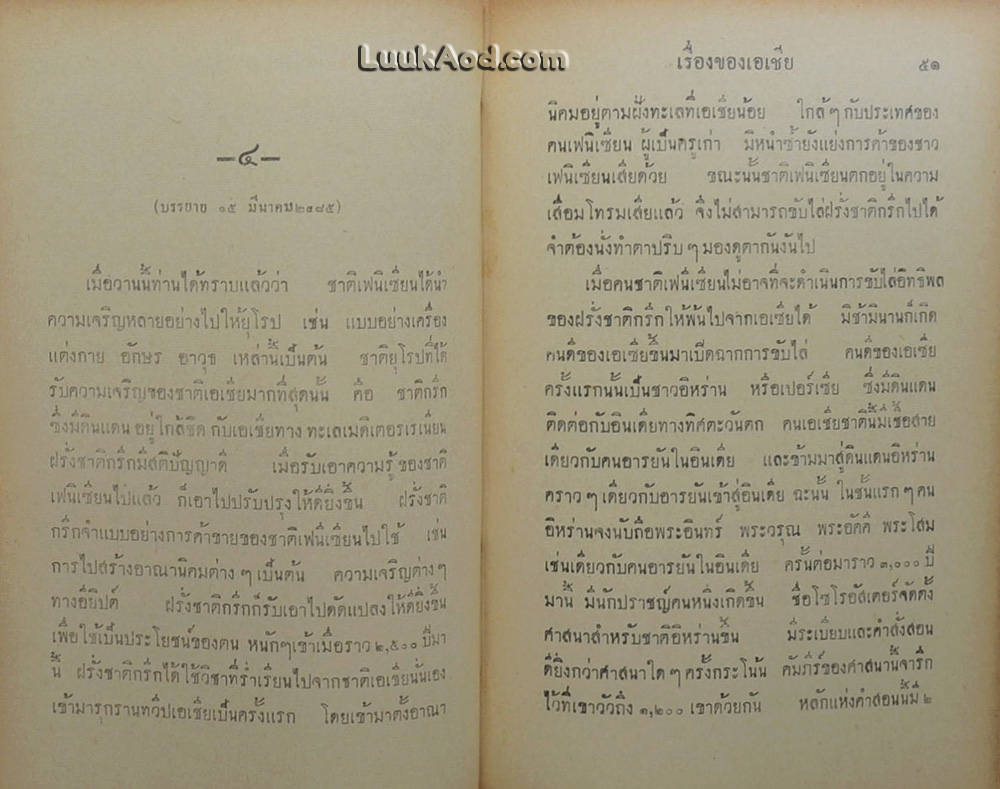 LuukAod.com
—๔—
(บรรยาย ๑๕ มีนาคม ๒๔๘๕)
เมื่อวานนี้ท่านได้ทราบแล้วว่า ชาติเฟนิเซี่ยนได้นำ
ความเจริญหลายอย่างไปให้ยุโรป เช่น แบบอย่างเครื่อง
แต่งกาย อักษร อาวุธ เหล่านี้เป็นต้น ชาติยุโรปที่ได้
รับความเจริญของชาติเอเชียมากที่สุดนั้น คือ ชาติกรีก
ซึ่งมีดินแดน อยู่ใกล้ชิด กับเอเชียทาง ทะเลเมดิเตอรเรเนียน
ฝรั่งชาติกรีกมีสติปัญญาดี เมื่อรับเอาความรู้ ของชาติ
เฟนิเซี่ยนไปแล้ว ก็เอาไปปรับปรุงให้ดียิ่งขึ้น ฝรั่งชาติ
กรีกจำแบบอย่างการค้าขายของชาติเฟนิเซี่ยนไปใช้ เช่น
การไปสร้างอาณานิคมต่าง ๆ เป็นต้น ความเจริญต่างๆ
ทางอียิปต์ ฝรั่งชาติกรีกก็รับเอาไปดัดแปลงให้ดียิ่งขึ้น
เพื่อใช้เป็นประโยชน์ของตน หนักๆเข้าเมื่อราว ๒,๕๐๐ ปีมา
นี้ ฝรั่งชาติกรีกได้ใช้วิชาที่ร่ำเรียนไปจากชาติเอเชียนั่นเอง
เข้ามารุกรานทวีปเอเชียเป็นครั้งแรก โดยเข้ามาตั้งอาณา
เรื่องของเอเชีย ๕๑
นิคมอยู่ตามฝั่งทะเลที่เอเชียน้อย ใกล้ๆ กับประเทศของ
คนเฟนิเซี่ยน ผู้เป็นครูเก่า มิหนำซ้ำยังแย่งการค้าของชาว
เฟนิเซี่ยนเสียด้วย ขณะนั้นชาติเฟนิเซี่ยนตกอยู่ในความ
เสื่อมโทรมเสียแล้ว จึงไม่สามารถขับไล่ฝรั่งชาติกรีกไปได้
จำต้องนั่งทำตาปริบ ๆ มองดูตากันงันไป
เมื่อคนชาติเฟนิเซี่ยนไม่อาจที่จะดำเนินการขับไล่อิทธิพล
ของฝรั่งชาติกรีกให้พ้นไปจากเอเชียได้ มิช้ามินานก็เกิด
คนดีของเอเชียขึ้นมาเปิดฉากการขับไล่ คนดีของเอเชีย
ครั้งแรกนั้นเป็นชาวอิหร่าน หรือเปอร์เซีย ซึ่งมีดินแดน
ติดต่อกับอินเดียทางทิศตะวันตก คนเอเชียชาตินี้มีเชื้อสาย
เดียวกับคนอารยันในอินเดีย และข้ามมาสู่ดินแดนอิหร่าน
คราว ๆ เดียวกับอารยันเข้าสู่อินเดีย ฉะนั้น ในชั้นแรก ๆ คน
อิหร่านจงนับถือพระอินทร์ พระวรุณ พระอัคคี พระโสม
เช่นเดียวกับคนอารยันในอินเดีย ครั้นต่อมาราว ๓,๐๐๐ ปี
มานี้ มีนักปราชญ์คนหนึ่งเกิดขึ้น ชื่อโซโรอัสเตอร์จัดตั้ง
ศาสนาสำหรับชาติอิหร่านขึ้น มีระเบียบและคำสั่งสอน
ดียิ่งกว่าศาสนาใด ๆ ครั้งกระโน้น คัมภีร์ของศาสนานี้จารึก
ไว้ที่เขาวัวถึง ๑,๒๐๐ เขาด้วยกัน หลักแห่งคำสอนนี้มี ๒